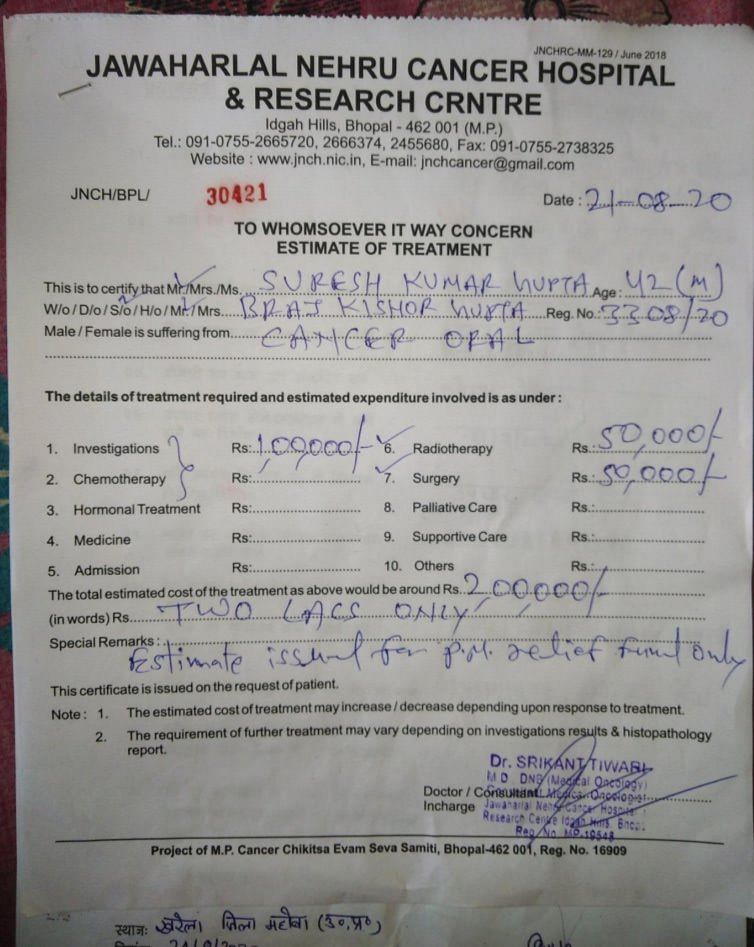 JNCHRC-MM-129 / June 2018
JAWAHARLAL NEHRU CANCER HOSPITAL
& RESEARCH CRNTRE
Idgah Hills, Bhopal - 462 001 (M.P.)
Tel.: 091-0755-2665720, 2666374, 2455680, Fax: 091-0755-2738325
Website : www.jnch.nic.in, E-mail: jnchcancer@gmail.com
JNCH/BPL/ 30421 Date : 21-08-20
TO WHOMSOEVER IT WAY CONCERN
ESTIMATE OF TREATMENT
This is to certify that Mr./Mrs./Ms. SURESH KUMAR GUPTA Age : 42 (M)
W/o / D/o / S/o / H/o / Mr./ Mrs. BRAJ KISHOR GUPTA Reg. No.: 3308/20
Male / Female is suffering from CANCER ORAL
The details of treatment required and estimated expenditure involved is as under :
1. Investigations Rs: 1,00,000/- 6. Radiotherapy Rs.: 50,000/-
2. Chemotherapy Rs: 7. Surgery Rs.: 50,000/-
3. Hormonal Treatment Rs: 8. Palliative Care Rs.:
4. Medicine Rs: 9. Supportive Care Rs.:
5. Admission Rs: 10. Others Rs.:
The total estimated cost of the treatment as above would be around Rs. 2,00,000/-
(in words) Rs. TWO LACS ONLY
Special Remarks :
Estimate issued for P.M. relief fund only
This certificate is issued on the request of patient.
Note : 1. The estimated cost of treatment may increase / decrease depending upon response to treatment.
2. The requirement of further treatment may vary depending on investigations results & histopathology
report.
Dr. SRIKANT TIWARI
M D DNB (Medical Oncology)
Doctor / Consultant Consultant Medical Oncologist
Incharge Jawaharlal Nehru Cancer Hospital
Research Centre Idgah Hills, Bhopal
Reg. No. MP-19548
Project of M.P. Cancer Chikitsa Evam Seva Samiti, Bhopal-462 001, Reg. No. 16909
स्थानः खरेला जिला महोबा (उ०प्र०)